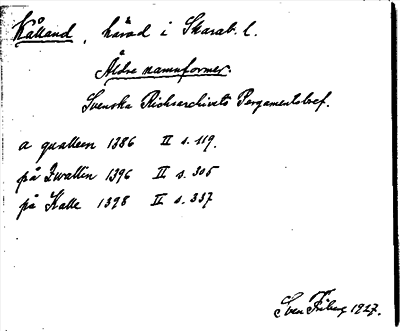 Kålland, härad i Skarab. l.
Äldre namnformer.
Svenska Riksarchivets Pergamentsbref.
a qvalleen 1386 II s. 119.
på Qwallin 1396 II s. 305
på Kalle 1398 II s. 337
Sven Friberg 1927.